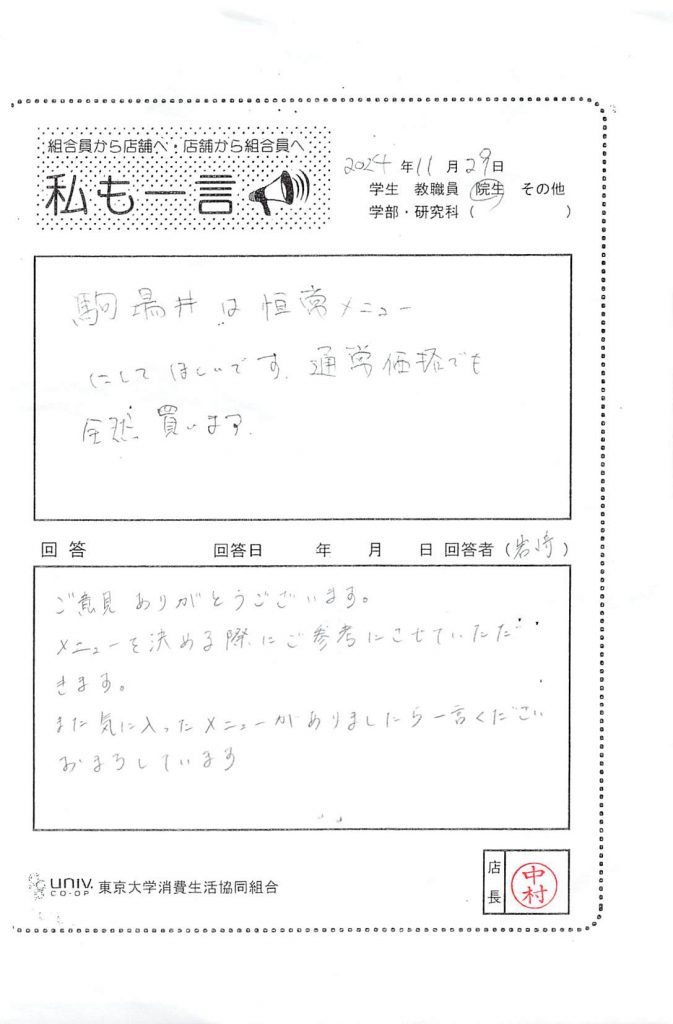 組合員から店舗へ・店舗から組合員へ
私も一言
2024年11月29日
学生 教職員 院生 その他
学部・研究科（ ）
駒場丼は恒常メニュー
にしてほしいです。通常価格でも
全然買います。
回答 回答日 年 月 日 回答者（岩崎）
ご意見ありがとうございます。
メニューを決める際にご参考にさせていただ
きます。
また気に入ったメニューがありましたら一言ください
おまちしています
UNIV. CO-OP 東京大学消費生活協同組合
店長 中村